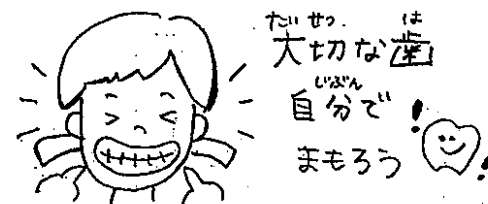 だいせつ は
大切な歯
じぶん
自分で
まもろう
！
！